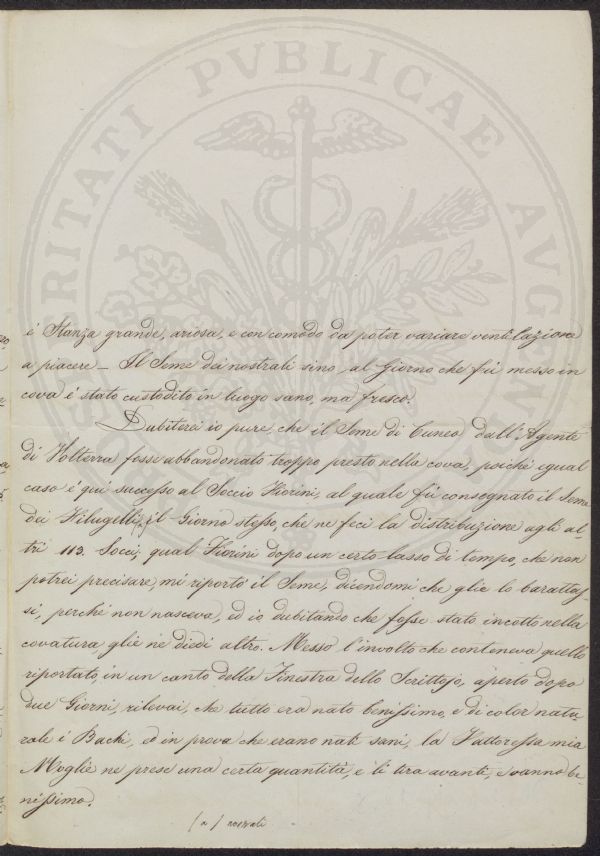 PROSPERITATI PVBLICAE AVGENDAE
é Stanza grande, ariosa, e con comodo da poter variare ventilazione
a piacere_ Il Seme dei nostrali sino al Giorno che fú messo in
cova é stato custodito in luogo sano, ma fresco.
Dubiterei io pure che il Seme di Cuneo dall'Agente
di Volterra fosse abbandonato troppo presto nella cova, poiché egual
caso é quí successo al Soccio Fiorini, al quale fú consegnato il Seme
dei Filugelli, il Giorno stesso, che ne feci la distribuzione agli al=
tri 113. Socci, qual Fiorini dopo un certo lasso di tempo, che non
potrei precisare, mi riportó il Seme, dicendomi che glie lo barattas
si, perché non nasceva, ed io dubitando che fosse stato incotto nella
covatura glie ne diedi altro. Messo l'involto che conteneva quello
riportato, in un canto della Finestra dello Scrittojo, aperto dopo
due Giorni, rilevai, che tutto era nato benissimo, e di color natu=
rale i Bachi, ed in prova che erano nati sani, la Fattoressa mia
Moglie ne prese una certa quantità, e li tira avanti, e vanno be=
nissimo.
(a)